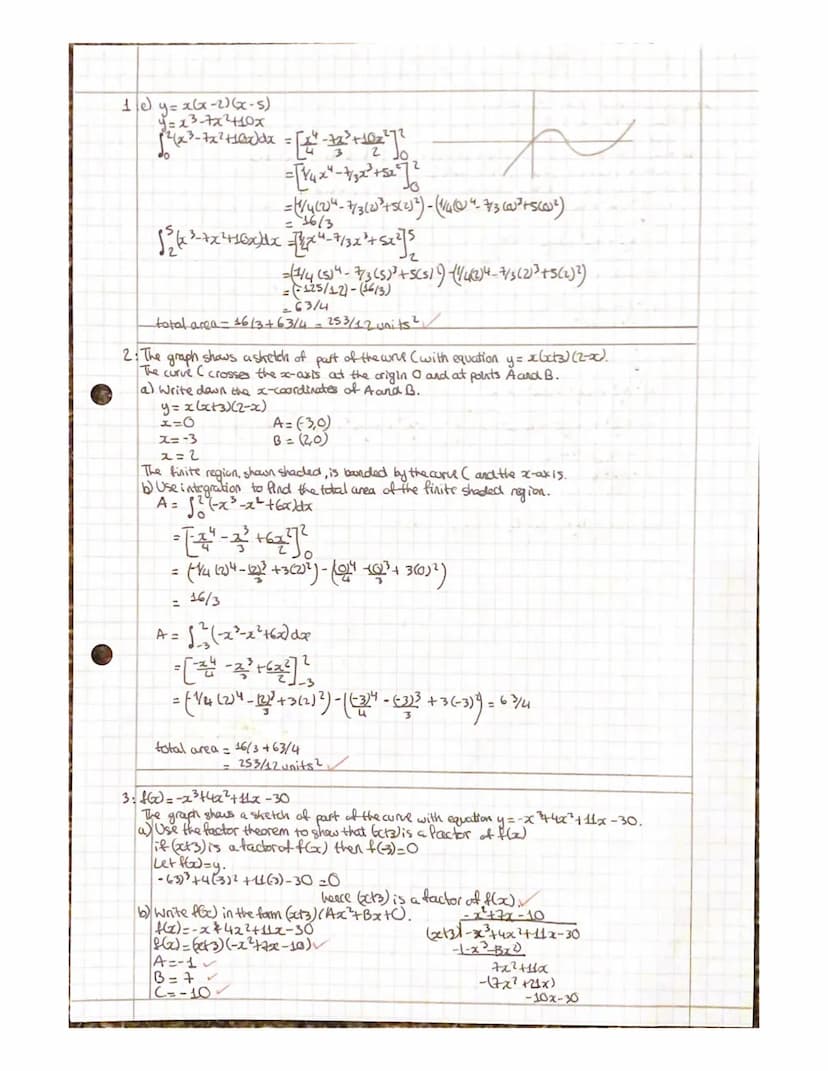 1 c) y = x(x-2)(x-5)
y = x³-7x²+10x
∫₀²(x³-7x²+10x)dx = [x⁴/4 - 7x³/3 + 10x²/2]₀²
= [1/4x⁴ - 7/3x³ + 5x²]₀²
= (1/4(2)⁴ - 7/3(2)³ + 5(2)²) - (1/4(0)⁴ - 7/3(0)³ + 5(0)²)
= 16/3
∫₂⁵(x³-7x²+10x)dx = [1/4x⁴ - 7/3x³ + 5x²]₂⁵
= (1/4(5)⁴ - 7/3(5)³ + 5(5)²) - (1/4(2)⁴ - 7/3(2)³ + 5(2)²)
= (-125/12) - (16/3)
= 63/4
total area = 16/3 + 63/4 = 253/12 units² ✓
2: The graph shows a sketch of part of the curve C with equation y = x(x+3)(2-x).
The curve C crosses the x-axis at the origin O and at points A and B.
a) Write down the x-coordinates of A and B.
y = x(x+3)(2-x)
x = 0 A = (-3,0)
x = -3 B = (2,0)
x = 2
The finite region, shown shaded, is bounded by the curve C and the x-axis.
b) Use integration to find the total area of the finite shaded region.
A = ∫₀²(-x³-x²+6x)dx
= [-x⁴/4 - x³/3 + 6x²/2]₀²
= (-1/4(2)⁴ - (2)³/3 + 3(2)²) - ((0)⁴/4 - (0)³/3 + 3(0)²)
= 16/3
A = ∫₋₃²(-x³-x²+6x)dx
= [-x⁴/4 - x³/3 + 6x²/2]₋₃²
= (-1/4(2)⁴ - (2)³/3 + 3(2)²) - ((-3)⁴/4 - (-3)³/3 + 3(-3)²) = 63/4
total area = 16/3 + 63/4
= 253/12 units² ✓
3: f(x) = -x³+4x²+11x-30
The graph shows a sketch of part of the curve with equation y = -x³+4x²+11x-30.
a) Use the factor theorem to show that (x+3) is a factor of f(x)
if (x+3) is a factor of f(x) then f(-3)=0
Let f(x)=y.
-(-3)³+4(-3)²+11(-3)-30 = 0
hence (x+3) is a factor of f(x). ✓
b) Write f(x) in the form (x+3)(Ax²+Bx+C).
f(x) = -x³+4x²+11x-30
f(x) = (x+3)(-x²+7x-10) ✓
A = -1 ✓
B = 7 ✓
C = -10 ✓
-x²+7x-10
(x+3)-x³+4x²+11x-30
-(-x³-3x²)
7x²+11x
-(7x²+21x)
-10x-30